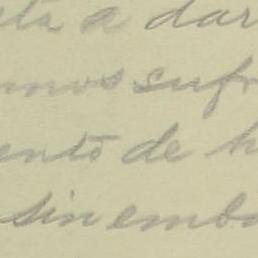 a dar
mos suf
ento de h
sin emb